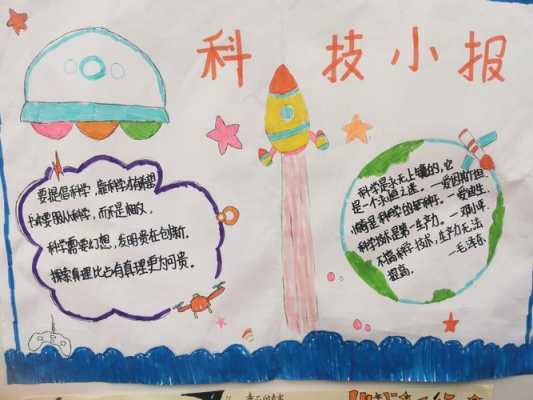 科技小报
要提倡科学,靠科学才有希望
才要用从科学,而不是相反.
科学需要幻想,发明贵在创新.
探索真理比占有真理更为可贵.
科学是永无止境的,它
是一个永恒之迷. —爱因斯坦.
惊奇是科学的种子. —爱迪生.
科学技术是第一生产力. —邓小平
不搞科学技术,生产力无法
提高. —毛泽东.